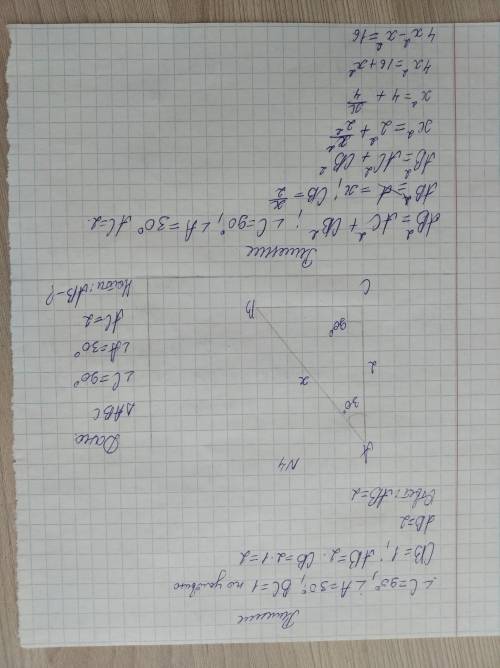 Решение
∠C=90°, ∠A=30°, BC=1 по условию
CB=1; AB=2·CB=2·1=2
AB=2
Ответ: AB=2
N4
Дано
△ABC
∠C=90°
∠A=30°
AC=2
Найти: AB-?
A
30°
2
x
90°
C
B
Решение
AB²=AC²+CB²; ∠C=90°, ∠A=30° AC=2
AB=x; CB=x/2
AB²=AC²+CB²
x²=2²+x²/2²
x²=4+x/4
4x²=16+x²
4x²-x²=16